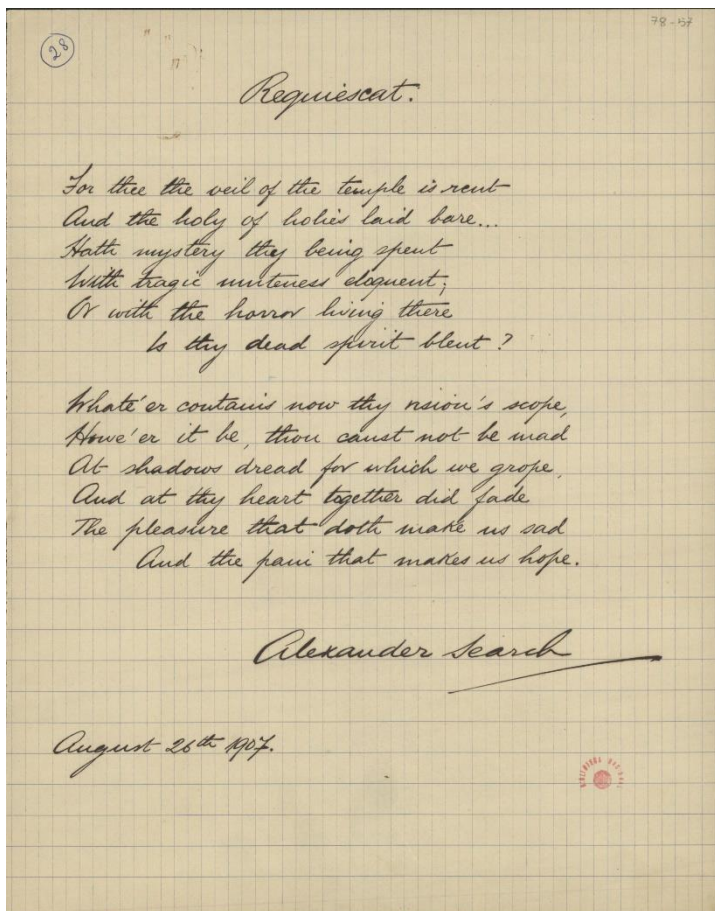 78-57
28
Requiescat.
For thee the veil of the temple is rent
And the holy of holies laid bare...
Hath mystery thy being spent
With tragic muteness eloquent;
Or with the horror living there
Is thy dead spirit blent?
Whate'er contains now thy vision's scope,
Howe'er it be, thou canst not be mad
At shadows dread for which we grope,
And at thy heart together did fade
The pleasure that doth make us sad
And the pain that makes us hope.
Alexander Search
August 26th 1907.
BIBLIOTECA NACIONAL